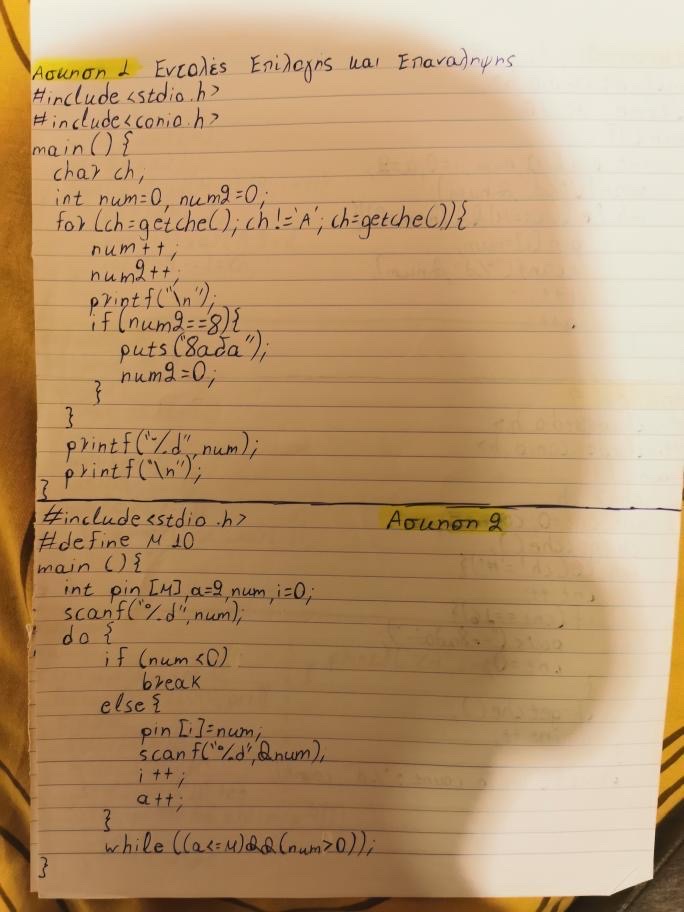 Άσκηση 1 Εντολές Επιλογής και Επανάληψης
#include <stdio.h>
#include <conio.h>
main () {
char ch;
int num=0, num2=0;
for (ch=getche(); ch!='A'; ch=getche()){
num++;
num2++;
printf("\n");
if (num2==8){
puts ("8αδα");
num2=0;
}
}
printf("%d", num);
printf("\n");
}
#include <stdio.h> Άσκηση 2
#define M 10
main () {
int pin [M], a=2, num, i=0;
scanf("%d", num);
do {
if (num <0)
break
else {
pin [i]=num;
scanf("%d", &num);
i ++;
a++;
}
while ((a<=M)&&(num>0));
}